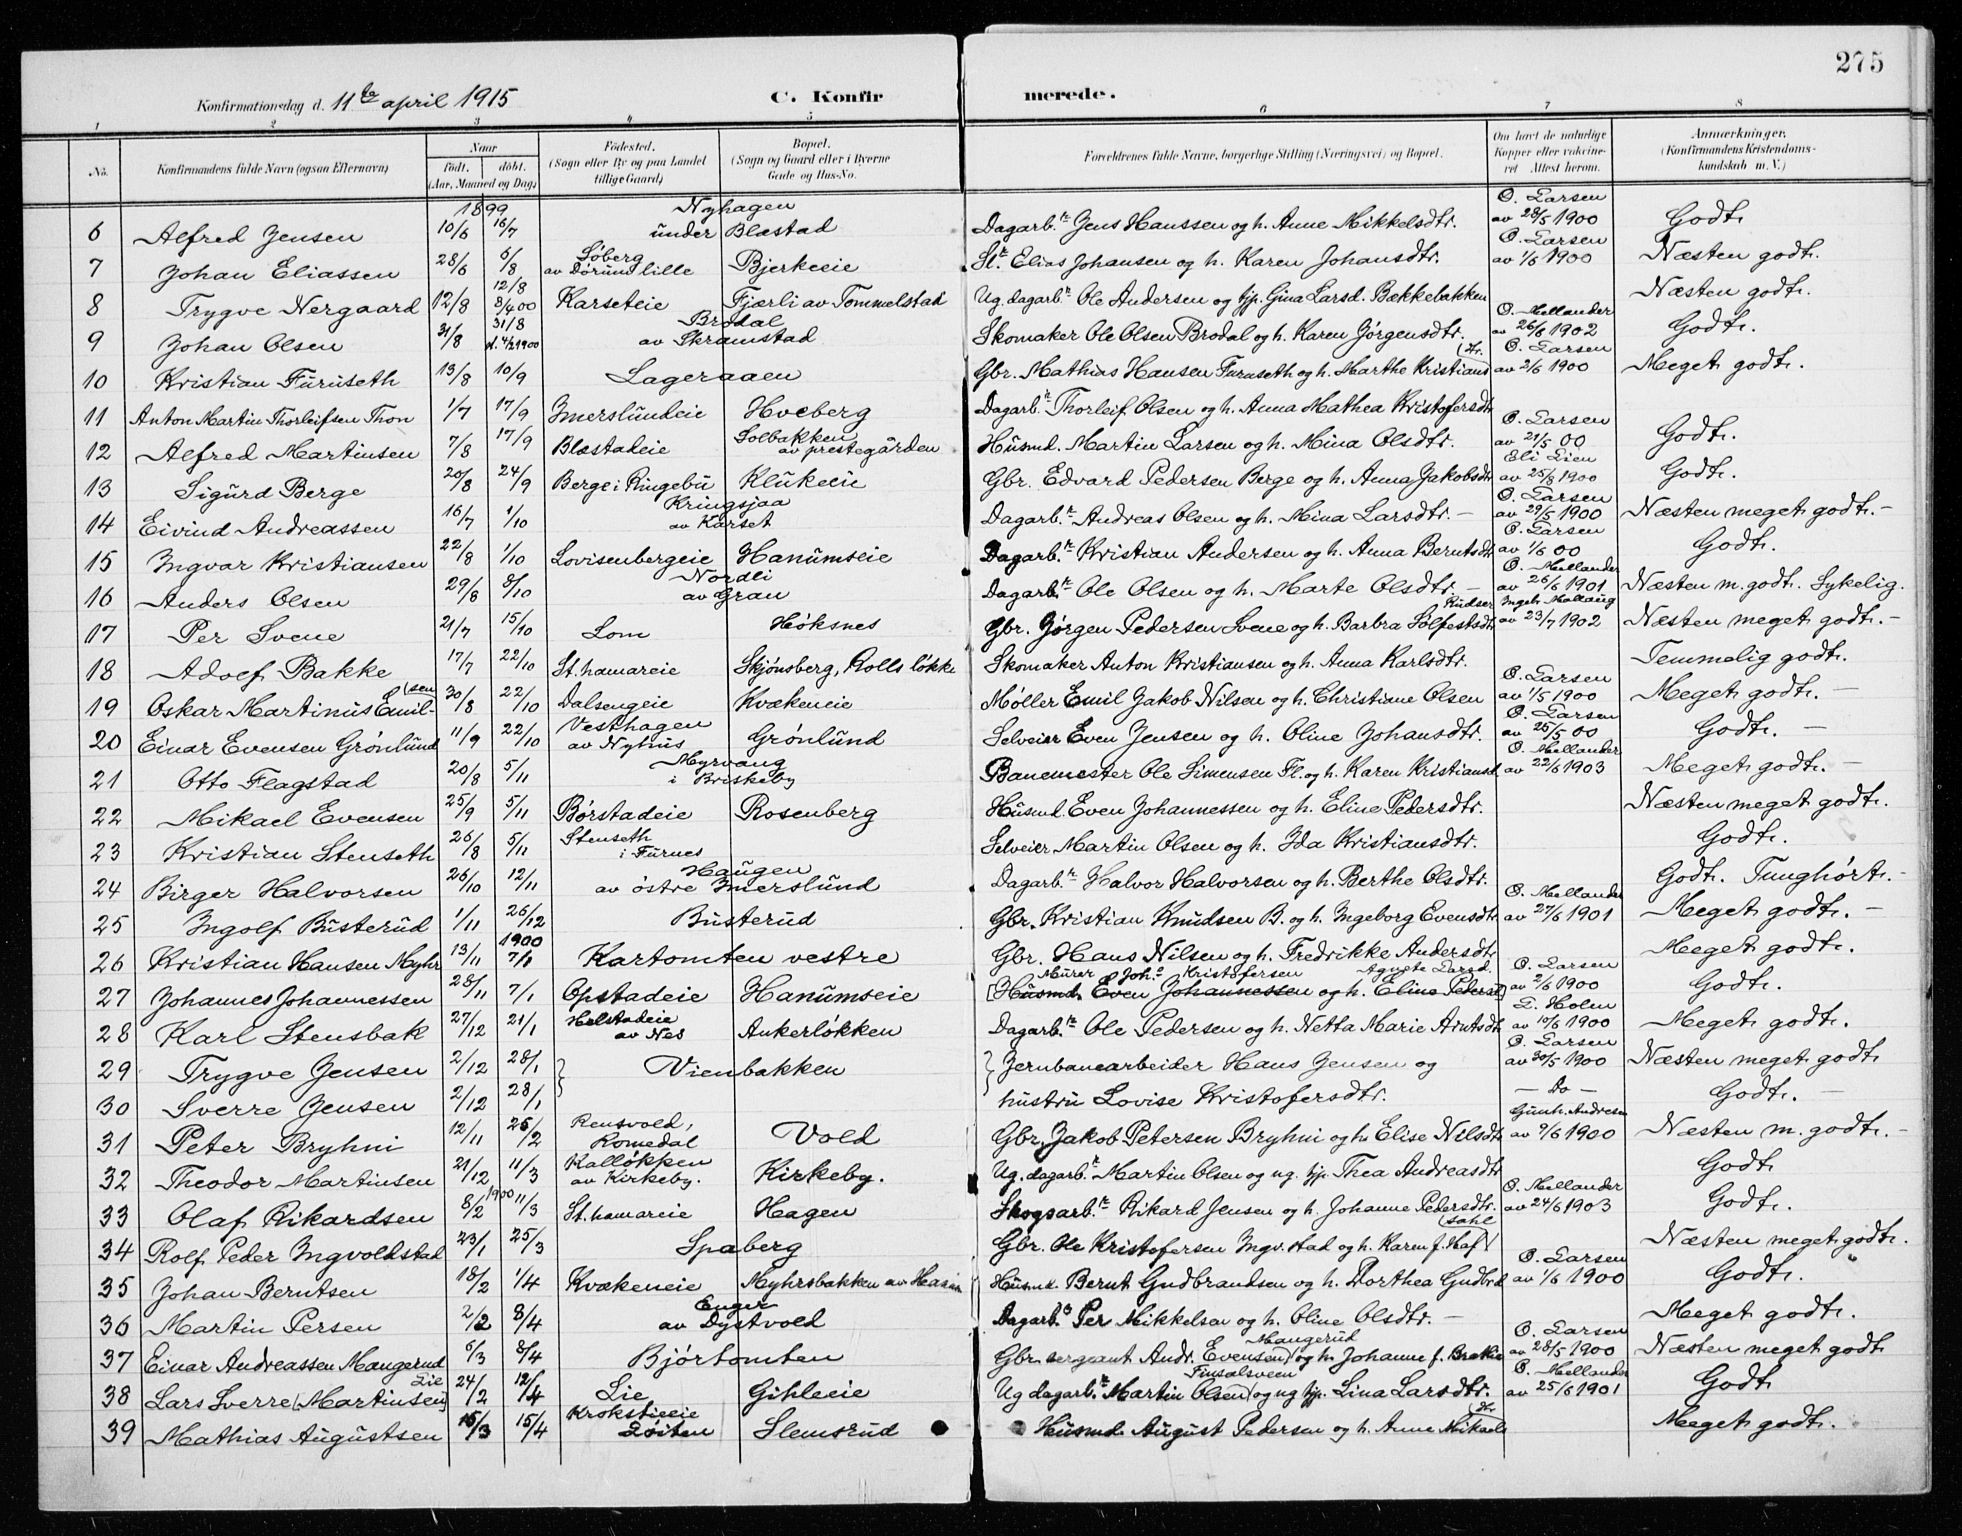 275
Konfirmationsdag d. 11te april 1915 C. Konfirmerede.
1 2 3 4 5 6 7 8
No. Konfirmandens fulde Navn (ogsaa Efternavn) Naar født. døbt. (Aar, Maaned og Dag) Fødested. (Sogn eller By og paa Landet tillige Gaard) Bopæl. (Sogn og Gaard eller i Byerne Gade og Hus-No. Forældrenes fulde Navne, borgerlige Stilling (Næringsvei) og Bopæl. Om havt de naturlige Kopper eller vaccineret Attest herom. Anmærkninger. (Konfirmandens Kristendomskundskab m. V.)
1899
6 Alfred Jensen 10/6 16/7 Nyhagen under Blæstad Dagarb.r Jens Hanssen og h. Anne Mikkelsdtr. O. Larsen av 28/5 1900 Godt.
7 Johan Eliassen 28/6 6/8 Søberg av Dørum lille Bjerkeeie St.r Elias Johansen og h. Karen Johansdtr. O. Larsen av 1/6 1900 Næsten godt.
8 Trygve Nergaard 12/8 12/8 8/4 00 Karseteie Fjærli av Tommelstad Ug. dagarb.r Ole Andersen og tjp. Gina Larsd. Bækkebakken Næsten godt.
9 Johan Olsen 31/8 31/8 d. 4/2 1900 Brodal av Skramstad Skomaker Ole Olsen Brodal og h. Karen Jørgensdtr. O. Mellander av 26/6 1902 Godt.
10 Kristian Furuseth 13/8 10/9 Lageraaen Gbr. Mathias Hansen Furuseth og h. Marthe Kristiansdtr. O. Larsen av 2/6 1900 Meget godt.
11 Anton Martin Thorleifsen Thon 1/7 17/9 Imerslundeie Hveberg Dagarb.r Thorleif Olsen og h. Anna Mathea Kristofersdtr
12 Alfred Martinsen 7/8 17/9 Blæstadeie Solbakken av prestegården Husmd. Martin Larsen og h. Mina Olsdtr. O. Larsen av 21/5 00 Godt.
13 Sigurd Berge 20/8 24/9 Berge i Ringebu Klukeeie Gbr. Edvard Pedersen Berge og h. Anna Jakobsdtr Eli Lien av 25/8 1900 Godt.
14 Eivind Andreassen 16/7 1/10 Kringsjaa av Karset Dagarb.r Andreas Olsen og h. Mina Larsdtr. — O. Larsen av 29/5 1900 Næsten meget godt. —
15 Ingvar Kristiansen 22/8 1/10 Lovisenbergeie Hanumseie Dagarb.r Kristian Andersen og h. Anna Berntsdtr O. Larsen av 1/6 00 Godt.
16 Anders Olsen 29/8 8/10 Nordli av Grau Dagarb.r Ole Olsen og h. Marte Olsdtr. — O. Mellander av 26/6 1901 Næsten m. godt. Sykelig.
17 Per Svene 21/7 15/10 Lom Høksnes Gbr. Jørgen Pedersen Svene og h. Barbra Solfestsdtr av 23/7 1902 Næsten meget godt. —
18 Adolf Bakke 17/7 22/10 St. hamareie Skjønsberg, Rolls løkke Skomaker Anton Kristiansen og h. Anna Karlsdtr. Temmelig godt.
19 Oskar Martinus Emilsen 30/8 22/10 Dalsengeie Kvækeneie Møller Emil Jakob Nilsen og h. Christiane Olsen O. Larsen av 1/5 1900 Meget godt. —
20 Einar Evensen Grønlund 11/9 22/10 Vesthagen av Nyhus Grønlund Selveier Even Jensen og h. Oline Johansdtr. O. Larsen av 25/5 00 Godt. —
21 Otto Flagstad 20/8 5/11 Myrvang i Briskeby Banemester Ole Simensen Fl. og h. Karen Kristiansd. O. Mellander av 22/6 1903 Meget godt. —
22 Mikael Evensen 25/9 5/11 Børstadeie Rosenberg Husmd. Even Johannessen og h. Eline Pedersdtr. Næsten meget godt.
23 Kristian Stenseth 26/8 5/11 Stenseth i Furnes Selveier Martin Olsen og h. Ida Kristiansdtr. Godt.
24 Birger Halvorsen 26/10 12/11 Haugen av østre Imerslund Dagarb.r Halvor Halvorsen og h. Berthe Olsdtr. Godt. Tunghørt. —
25 Ingolf Busterud 1/11 26/12 Busterud Gbr. Kristian Knudsen B. og h. Ingeborg Evensdtr O. Mellander av 27/6 1901 Meget godt. —
1900
26 Kristian Hansen Myhr 13/11 7/1 Kartomten vestre Gbr. Hans Nilsen og h. Fredrikke Andersdtr Meget godt.
27 Johannes Johannessen 28/11 7/1 Opstadeie Hanumseie Murer Joh.s Kristofersen Agnete Larsd. [Husmd. Even Johannessen og h. Eline Pedersd] O. Larsen av 2/6 1900 Godt.
28 Karl Stensbak 27/12 21/1 Helstadeie av Nes Ankerløkken Dagarb.r Ole Pedersen og h. Netta Marie Arntsdtr L. Holen av 10/6 1900 Meget godt.
29 Trygve Jensen 2/12 28/1 } Vienbakken } Jernbanearbeider Hans Jensen og O. Larsen av 30/5 1900 Næsten meget godt
30 Sverre Jensen 2/12 28/1 hustru Lovise Kristofersdtr. — Do — Godt. —
31 Peter Bryhni 12/11 25/2 Rensvold, Romedal Vold Gbr. Jakob Petersen Bryhni og h. Elise Nilsdtr Gunh. Andresen av 9/6 1900 Næsten m. godt. —
32 Theodor Martinsen 21/12 11/3 Kalløkken av Kirkeby. Kirkeby. Ug. dagarb.r Martin Olsen og ug. tjp. Thea Andreasdtr Godt.
33 Olaf Rikardsen 8/2 1900 11/3 St. hamareie Hagen Skogsarb.r Rikard Jensen og h. Johanne Pedersdtr. O. Mellander av 24/6 1903 Godt.
34 Rolf Peder Ingvoldstad 23/1 25/3 Spaberg Gbr. Ole Kristofersen Ingv.stad og h. Karen f. Hafsahl Næsten meget godt.
35 Johan Berntsen 18/2 1/4 Kvækeneie Myhrsbakken av Husmd. Bernt Gudbrandsen og h. Dorthea Gudbrd O. Larsen av 1/6 1900 Godt.
36 Martin Persen 2/2 8/4 Enger av Dystvold Dagarb. Per Mikkelsen og h. Oline Olsdtr. — Meget godt.
37 Einar Andreassen Mangerud 6/3 8/4 Bjørtomten Gbr. sergeant Andr. Evensen Mangerud og h. Johanne f. O. Larsen av 28/5 1900 Næsten meget godt
38 Lars Sverre (Martinsen) Lie 24/2 12/4 Lie Gihleeie Ug dagarb.r Martin Olsen Finsalsveen og ug tjp. Lina Larsdtr. O. Mellander av 25/6 1901 Godt
39 Mathias Augustsen 15/3 15/4 Krokstieeie Løiten Slemsrud Husmd August Pedersen og h. Anne Mikaelsdtr. Meget godt.